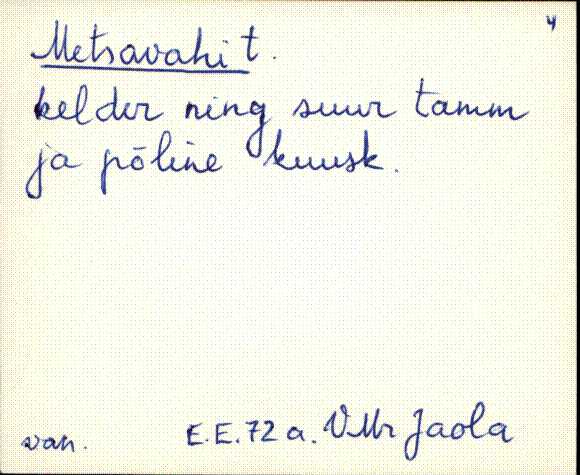 4
Metsavahi t.
kelder ning suur tamm
ja põline kuusk.
van. E.E.72 a. VMr Jaola